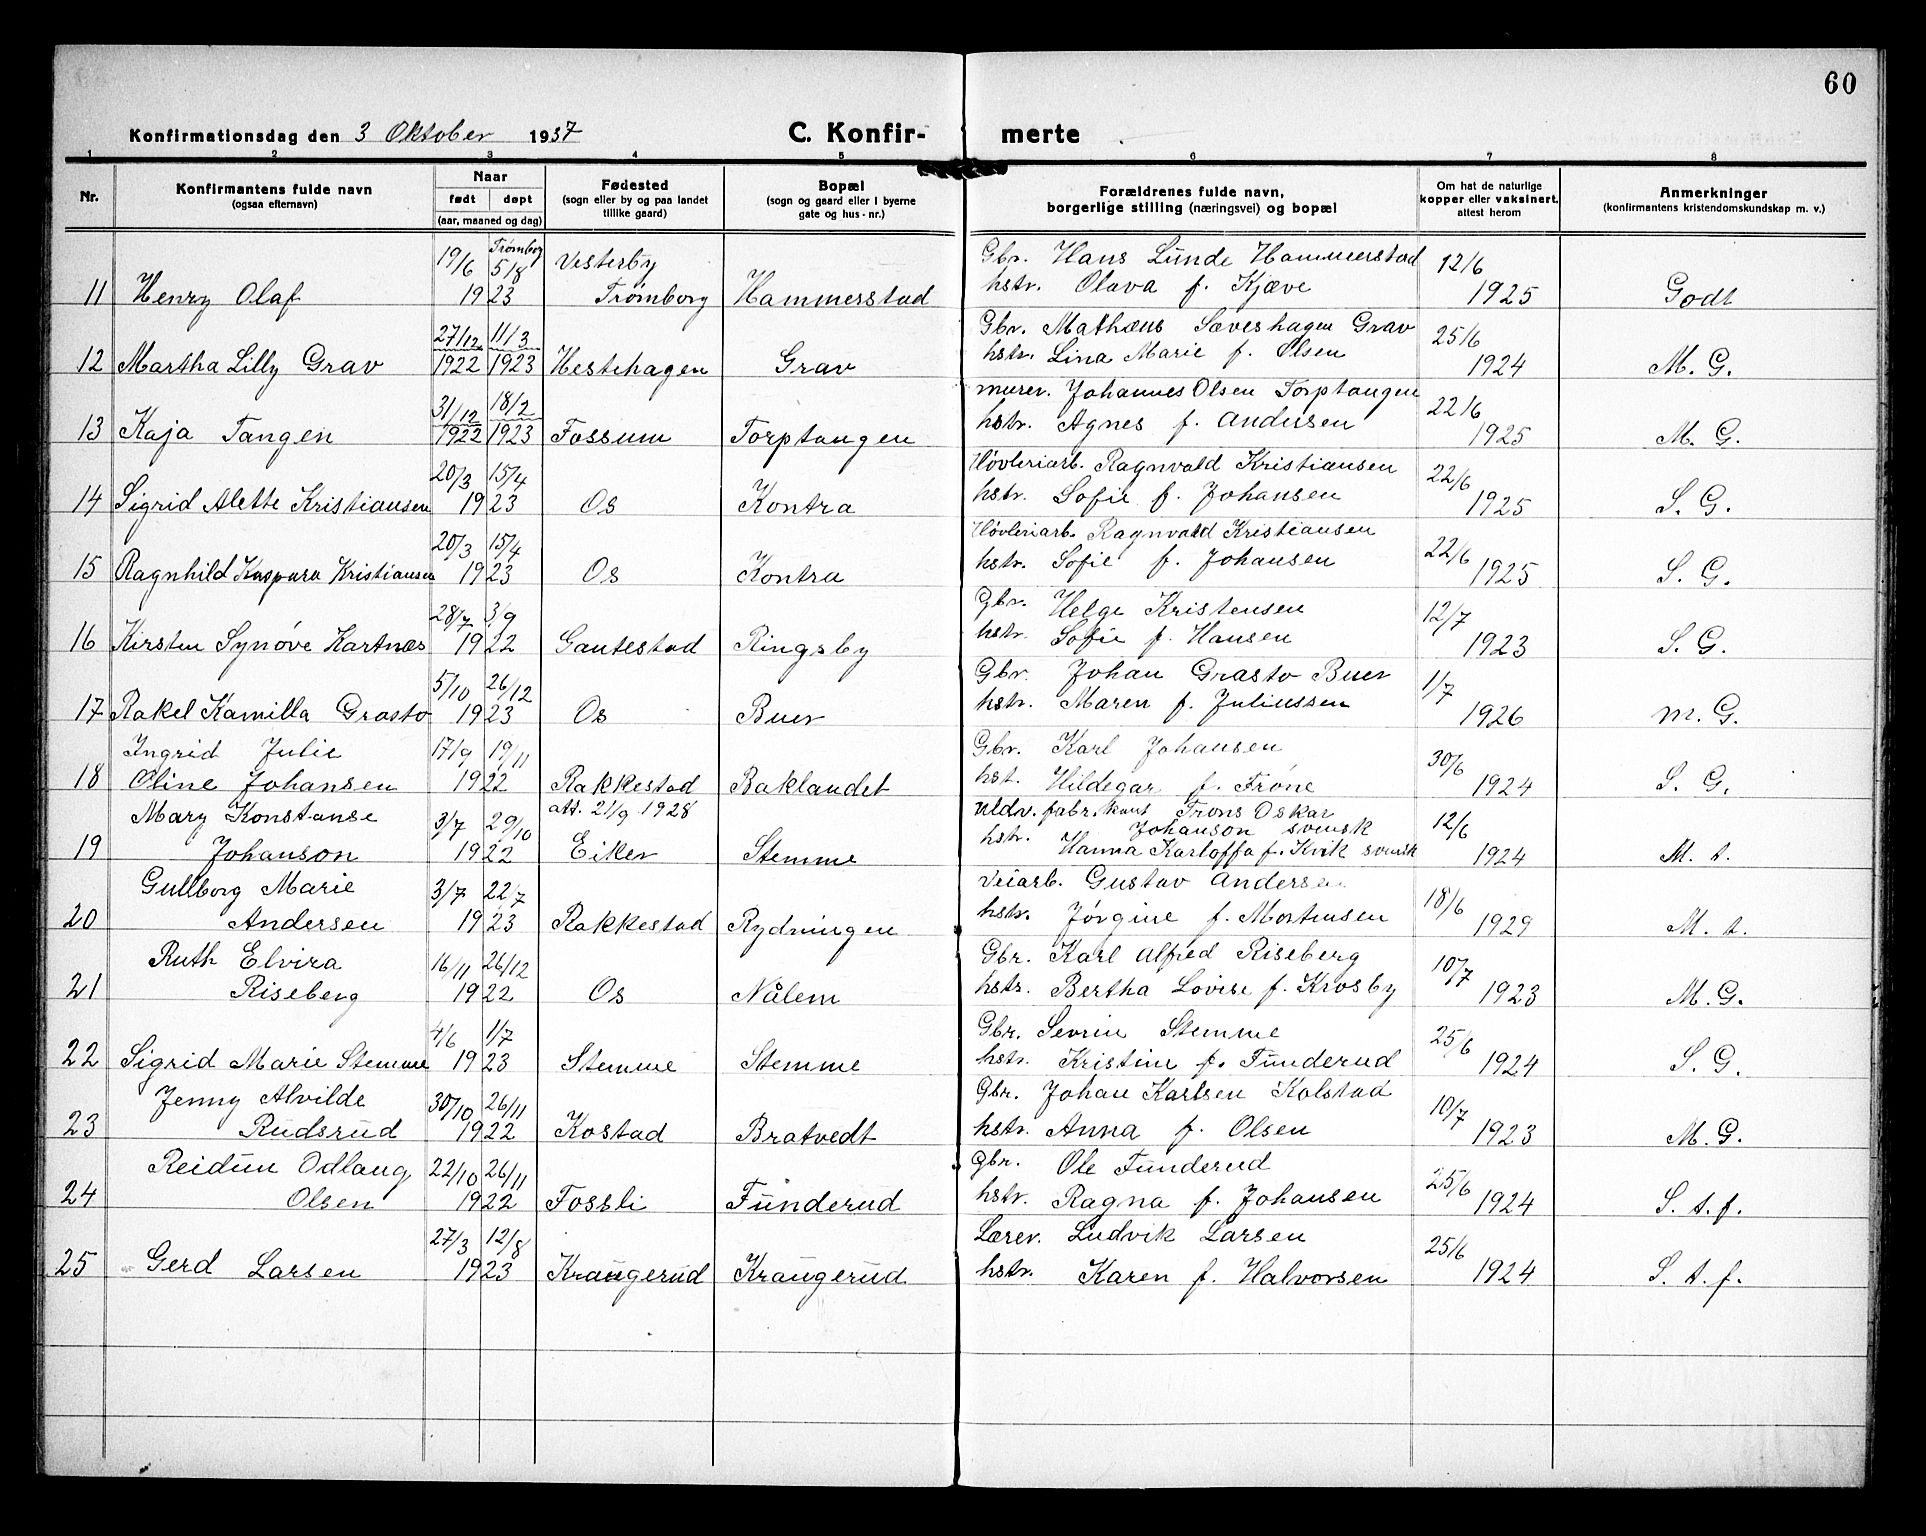 60
Konfirmationsdag den 3 Oktober 1937 C. Konfir- merte
1 2 3 4 5 6 7 8
Nr. Konfirmantens fulde navn (ogsaa efternavn) Naar født døpt (aar, maaned og dag) Fødested (sogn eller by og paa landet tillike gaard) Bopæl (sogn og gaard eller i byerne gate og hus-nr.) Forældrenes fulde navn, borgerlige stilling (næringsvei) og bopæl Om hat de naturlige kopper eller vaksinert, attest herom Anmerkninger (konfirmantens kristendomskundskap m. v.)
19/6 Trømborg 5/8 Vesterby Gbr. Hans Lunde Hammerstad 12/6
11 Henry Olaf 1923 Trømborg Hammerstad hstr. Olava f. Kjæve 1925 Godt
27/12 11/3 Gbr. Mathæus Sæveshagen Grav 25/6
12 Martha Lilly Grav 1922 1923 Hestehagen Grav hstr. Lina Marie f. Olsen 1924 M. G.
31/12 18/2 murer. Johannes Olsen Torptangen 22/6
13 Kaja Tangen 1922 1923 Fossum Torptangen hstr. Agnes f. Andersen 1925 M. G.
20/3 15/4 Høvleriarb. Ragnvald Kristiansen 22/6
14 Sigrid Alette Kristiansen 1923 Os Kontra hstr. Sofie f. Johansen 1925 S. G.
20/3 15/4 Høvleriarb. Ragnvald Kristiansen 22/6
15 Ragnhild Kaspara Kristiansen 1923 Os Kontra hstr. Sofie f. Johansen 1925 S. G.
28/7 3/9 Gbr. Helge Kristensen 12/7
16 Kirsten Synøve Kartnæs 1922 Gautestad Ringsby hstr. Sofie f. Hansen 1923 S. G.
5/10 26/12 Gbr. Johan Grasto Buer 1/7
17 Rakel Kamilla Grasto 1923 Os Buer hstr. Maren f. Juliussen 1926 M. G.
Ingrid Julie 17/9 19/11 Gbr. Karl Johansen 30/6
18 Oline Johansen 1922 Rakkestad Baklandet hst. Hildegar f. Frøne 1924 S. G.
Mary Konstanse 3/7 29/10 att. 21/9 1928 Uldv. fabr. kant Frons Oskar 12/6
hstr. Johanson svensk
19 Johanson 1922 Eiker Stemme Hanna Karloffa f. Kvik svensk 1924 M. t.
Gullborg Marie 3/7 22/7 Veiarb. Gustav Andersen 18/6
20 Andersen 1923 Rakkestad Rydningen hstr. Jørgine f. Mortensen 1929 M. t.
Ruth Elvira 16/11 26/12 Gbr. Karl Alfred Riseberg 10/7
21 Riseberg 1922 Os Nålem hstr. Bertha Lovise f. Krosby 1923 M. G.
4/6 1/7 Gbr. Sevrin Stemme 25/6
22 Sigrid Marie Stemme 1923 Stemme Stemme hstr. Kristine f. Funderud 1924 S. G.
Jenny Alvilde 30/10 26/11 Gbr. Johan Karlsen Kolstad 10/7
23 Rudsrud 1922 Kostad Bratvedt hstr. Anna f. Olsen 1923 M. G.
Reidun Odlaug 22/10 26/11 gbr. Ole Funderud 25/6
24 Olsen 1922 Fossli Funderud hstr. Ragna f. Johansen 1924 S. t. f.
27/3 12/8 Lærer. Ludvik Larsen 25/6
25 Gerd Larsen 1923 Kraugerud Kraugerud hstr. Karen f. Halvorsen 1924 S. t. f.